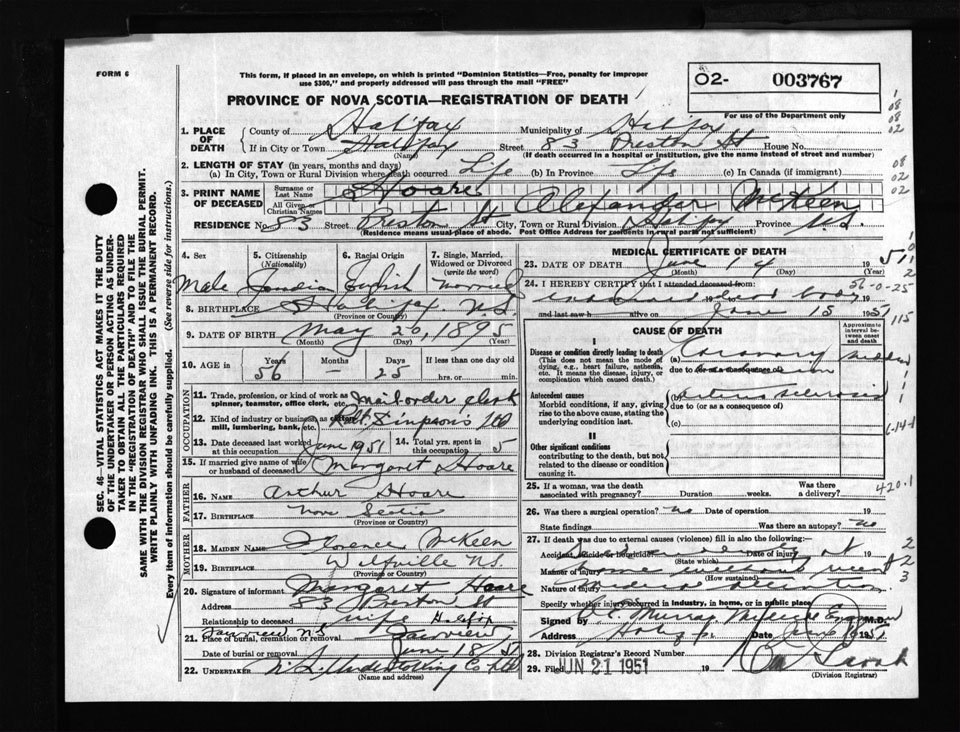 FORM 6
This form, if placed in an envelope, on which is printed "Dominion Statistics—Free, penalty for improper
use $300," and properly addressed will pass through the mail "FREE"
02- 003767
For use of the Department only
PROVINCE OF NOVA SCOTIA—REGISTRATION OF DEATH
1. PLACE OF DEATH
County of Halifax Municipality of Halifax
If in City or Town Halifax Street 83 Preston St House No.
(Name) (If death occurred in a hospital or institution, give the name instead of street and number)
2. LENGTH OF STAY (in years, months and days)
(a) In City, Town or Rural Division where death occurred Life (b) In Province Life (c) In Canada (if immigrant)
3. PRINT NAME OF DECEASED
Surname or Last Name Hoare
All Given or Christian Names Alexander McKeen
RESIDENCE No. 83 Street Preston St City, Town or Rural Division Halifax Province N.S.
(Residence means usual place of abode. Post Office Address for residents in rural parts not sufficient)
4. Sex Male
5. Citizenship (Nationality) Canadian
6. Racial Origin English
7. Single, Married, Widowed or Divorced (write the word) Married
8. BIRTHPLACE Halifax N.S.
(Province or Country)
9. DATE OF BIRTH May 20, 1895
(Month) (Day) (Year)
10. AGE Years 56 Months — Days 25 If less than one day old hrs. or min.
OCCUPATION
11. Trade, profession, or kind of work as spinner, teamster, office clerk, etc. Mail order clerk
12. Kind of industry or business, as mill, lumbering, bank, etc. Robt. Simpson's Ltd
13. Date deceased last worked at this occupation June 1951
14. Total yrs. spent in this occupation 5
15. If married give name of wife or husband of deceased Margaret Hoare
FATHER
16. NAME Arthur Hoare
17. BIRTHPLACE Nova Scotia
(Province or Country)
MOTHER
18. MAIDEN NAME Florence McKeen
19. BIRTHPLACE Wolfville N.S.
(Province or Country)
20. Signature of informant Margaret Hoare
Address 83 Preston St
Halifax
Relationship to deceased wife
21. Place of burial, cremation or removal Fairview N.S. Fairview
Date of burial or removal June 18 51
22. UNDERTAKER N.S. Undertaking Co Ltd
(Name and address)
MEDICAL CERTIFICATE OF DEATH
23. DATE OF DEATH June 14 1951
(Month) (Day) (Year)
24. I HEREBY CERTIFY that I attended deceased from:
56-0-25
dead body
and last saw h alive on June 15 1951
CAUSE OF DEATH
Approximate interval between onset and death
I
Disease or condition directly leading to death
(This does not mean the mode of dying, e.g., heart failure, asthenia, etc. It means the disease, injury, or complication which caused death.
(a) Coronary
due to (or as a consequence of)
Antecedent causes
Morbid conditions, if any, giving rise to the above cause, stating the underlying condition last.
(b) Arterio sclerosis
due to (or as a consequence of)
(c)
II
Other significant conditions
contributing to the death, but not related to the disease or condition causing it.
25. If a woman, was the death associated with pregnancy? Duration weeks. Was there a delivery?
420.1
26. Was there a surgical operation? no Date of operation
State findings Was there an autopsy? no
27. If death was due to external causes (violence) fill in also the following:—
Accident, suicide or homicide? Date of injury 19
(State which)
Manner of injury
(How sustained)
Nature of injury
Specify whether injury occurred in industry, in home, or in public place
Signed by Murray M.D.
Address Date 1951
28. Division Registrar's Record Number
29. Filed JUN 21 1951 19
(Division Registrar)
SEC. 46—VITAL STATISTICS ACT MAKES IT THE DUTY
OF THE UNDERTAKER OR PERSON ACTING AS UNDER-
TAKER TO OBTAIN ALL THE PARTICULARS REQUIRED
IN THE "REGISTRATION OF DEATH" AND TO FILE THE
SAME WITH THE DIVISION REGISTRAR WHO SHALL ISSUE THE BURIAL PERMIT.
WRITE PLAINLY WITH UNFADING INK. THIS IS A PERMANENT RECORD.
Every item of information should be carefully supplied. (See reverse side for instructions.)